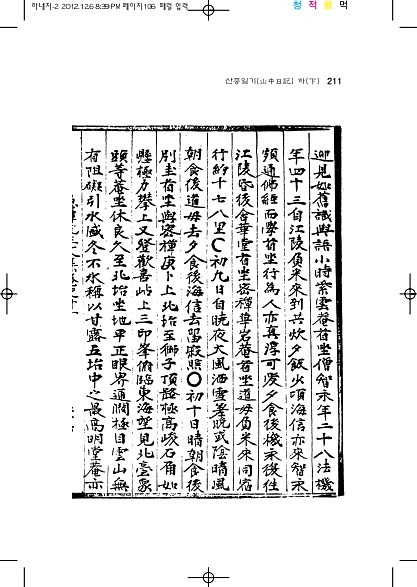 하내지-2 2012.12.6 8:39 PM 페이지106 폐령 입력
청 적 황 먹
산중일기(山中日記) 하(下) 211
迎見如舊識與語小時紫雲庵首坐僧智永年二十八法機
年四十三自江陵負米來到共炊夕飯少頃海信亦來智永
頗通佛經西學首坐行為人亦真淳可愛夕食後機永後住
江陵昏後會華堂首坐密禪華岩庵首坐道毋負米來同宿
行約十七八里〇初九日自曉夜大風洒雪差晩或陰晴風
朝食後道毋去夕食後海信去留寂照〇初十日晴朝食後
別圭首坐與密禪庚卜上北坮至獅子頂路極高峻石角如
懸極力攀上又發歡喜岾上三印峯俯臨東海望見北臺象
頤等菴坐休良久至北坮坐地平正眼界通闊極目雲山無
有阻礙引水咸冬不氷稱以甘露五坮中之最高明堂菴亦